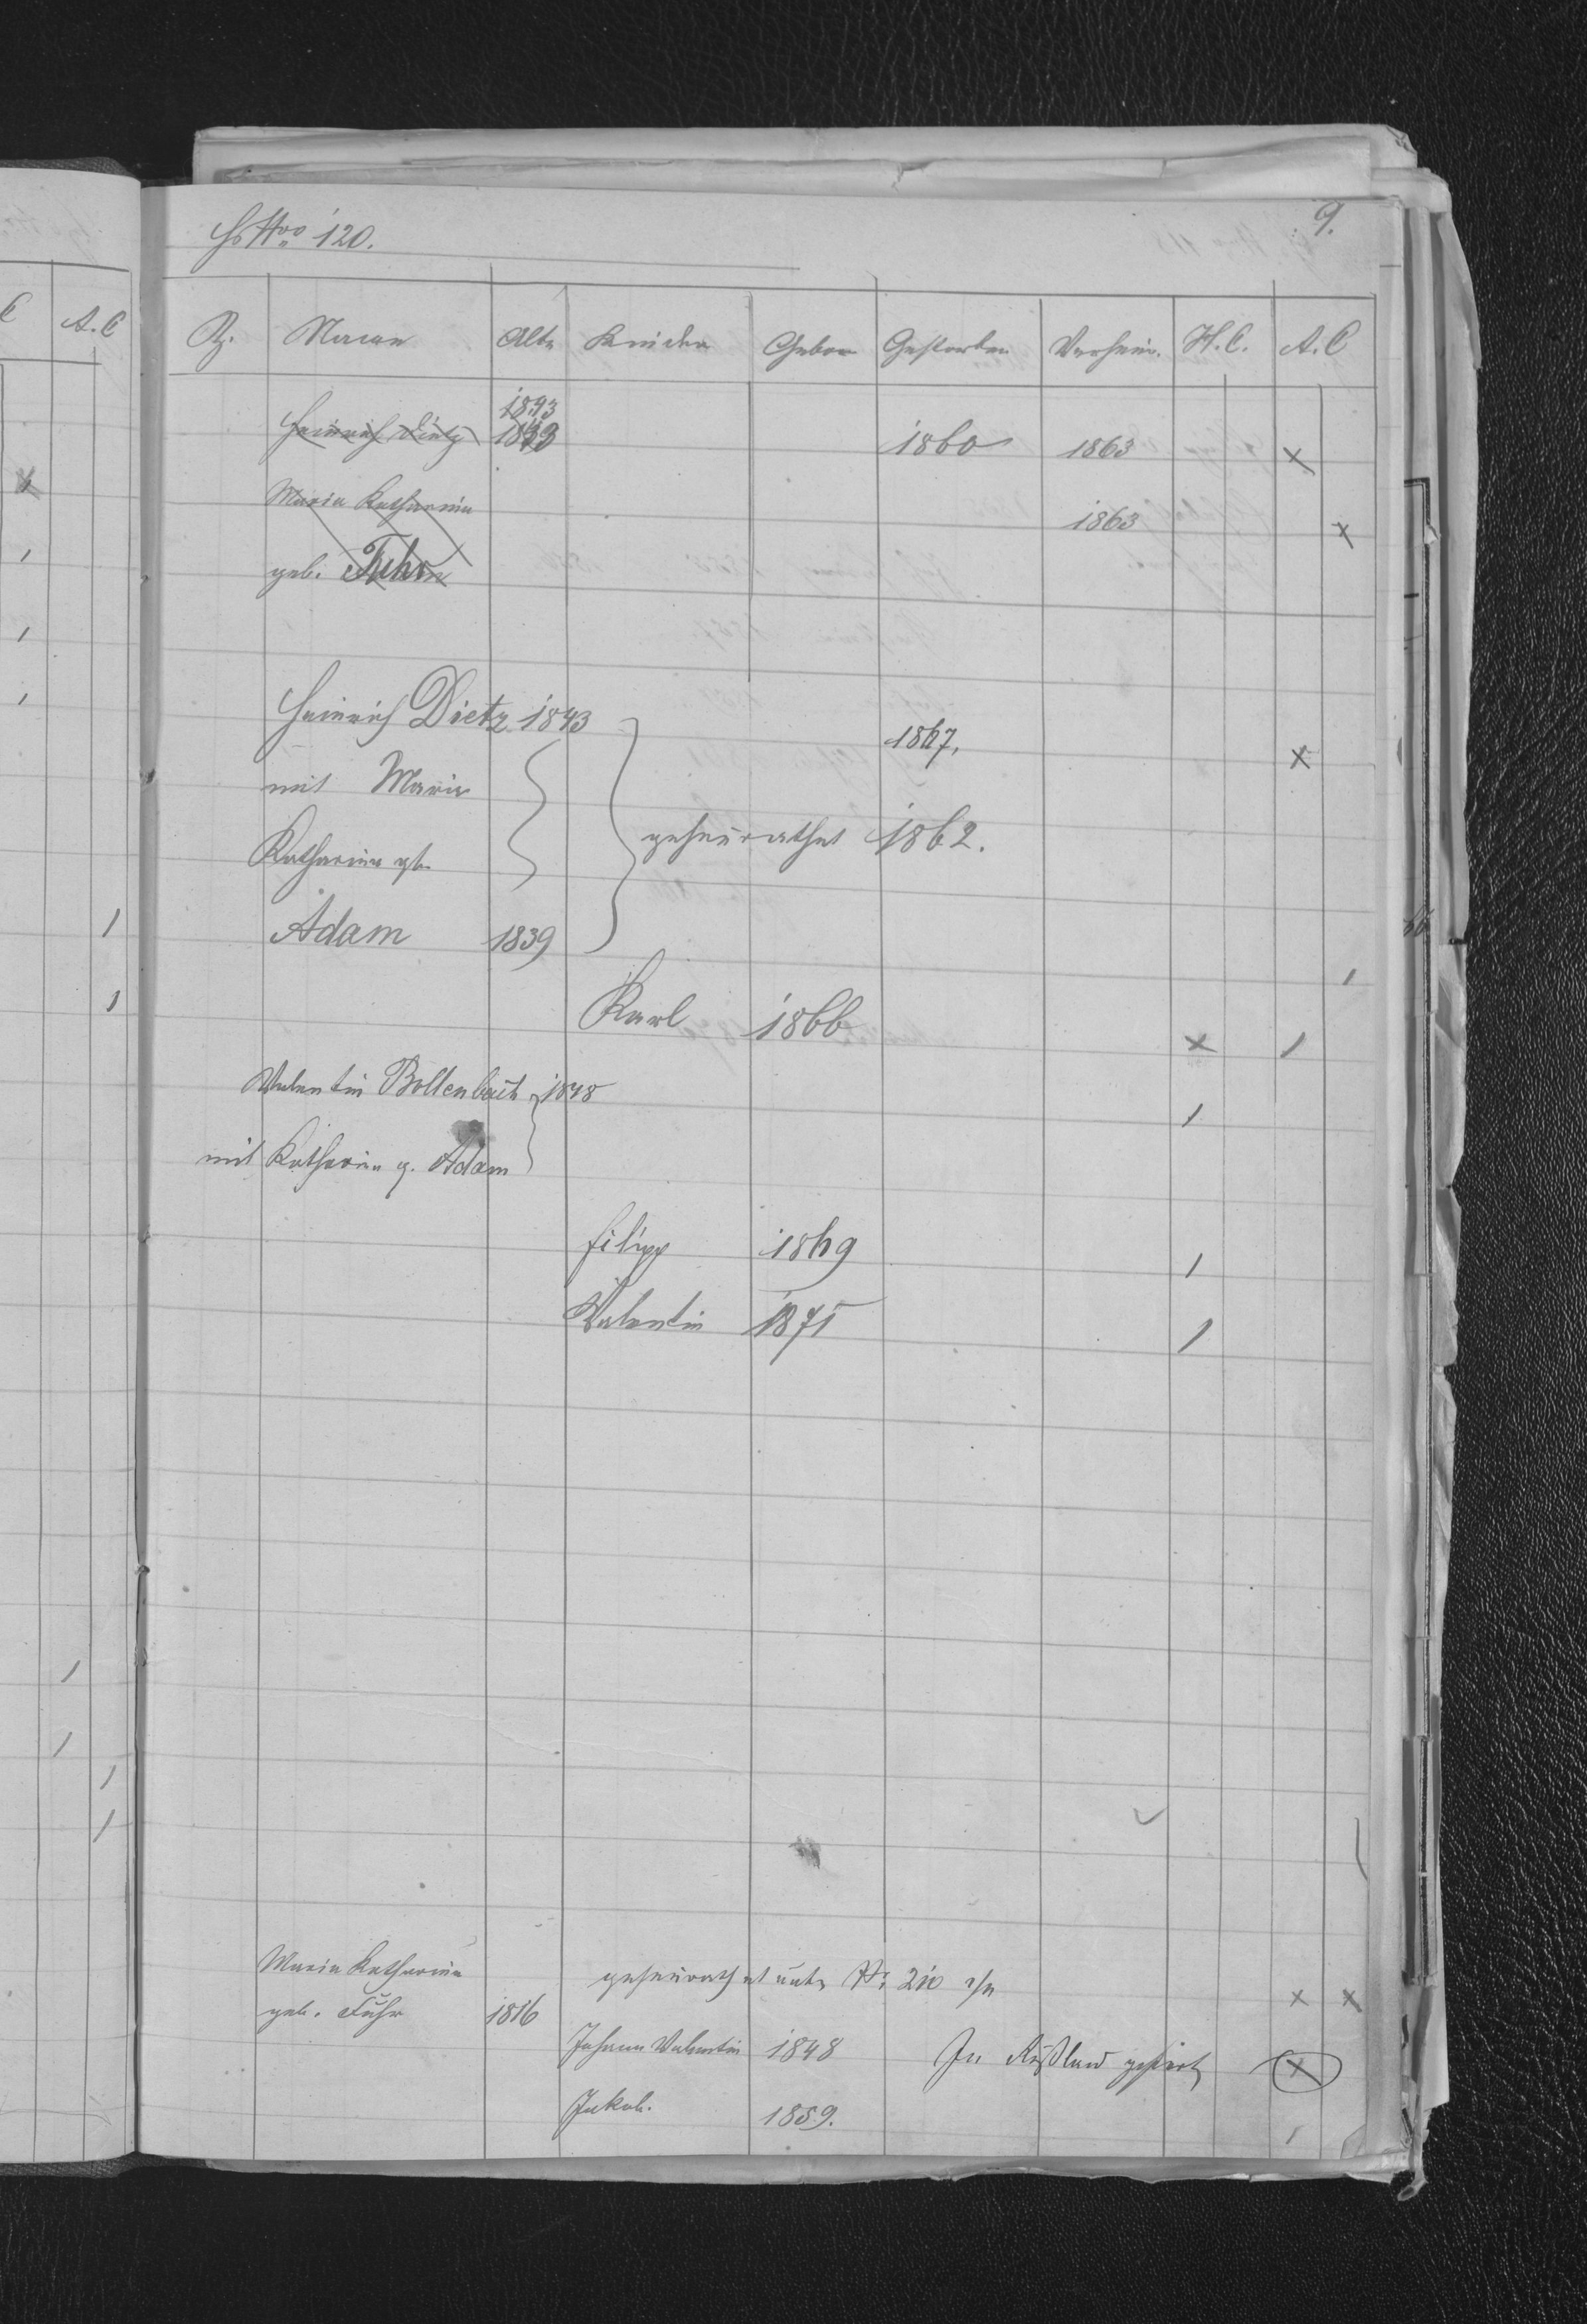 Hs Nro 120.
9.
Z. Namen Alter Kinder Gebor Gestorben Verheir. H.C. A.C
1843
Heinrich Dietz 1860 1863 x
Maria Katharina 1863 x
geb. Fuhr
Heinrich Dietz 1843 1867. x
mit Maria
Katharina gb. geheirathet 1862.
Adam 1839 1
Karl 1866 x 1
Valentin Bollenbach 1848 1
mit Katharina g. Adam
Filipp 1869 1
Valentin 1871 1
Maria Katharina geheirathet unter Nr. 210
geb. Fuhr 1816 x x
Johann Valentin 1848 In Rußland x
Jakob. 1859. 1
C A.C